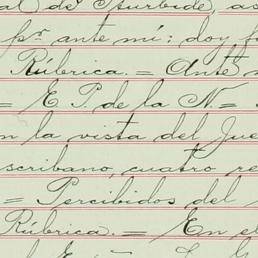 al de Iturbide, as
pr. ante mí: doy f
Rúbrica. = Ante
= E. P. de la N. =
n la vista del Jue
scribano, cuatro re
= Percibidos del
Rúbrica. = En el